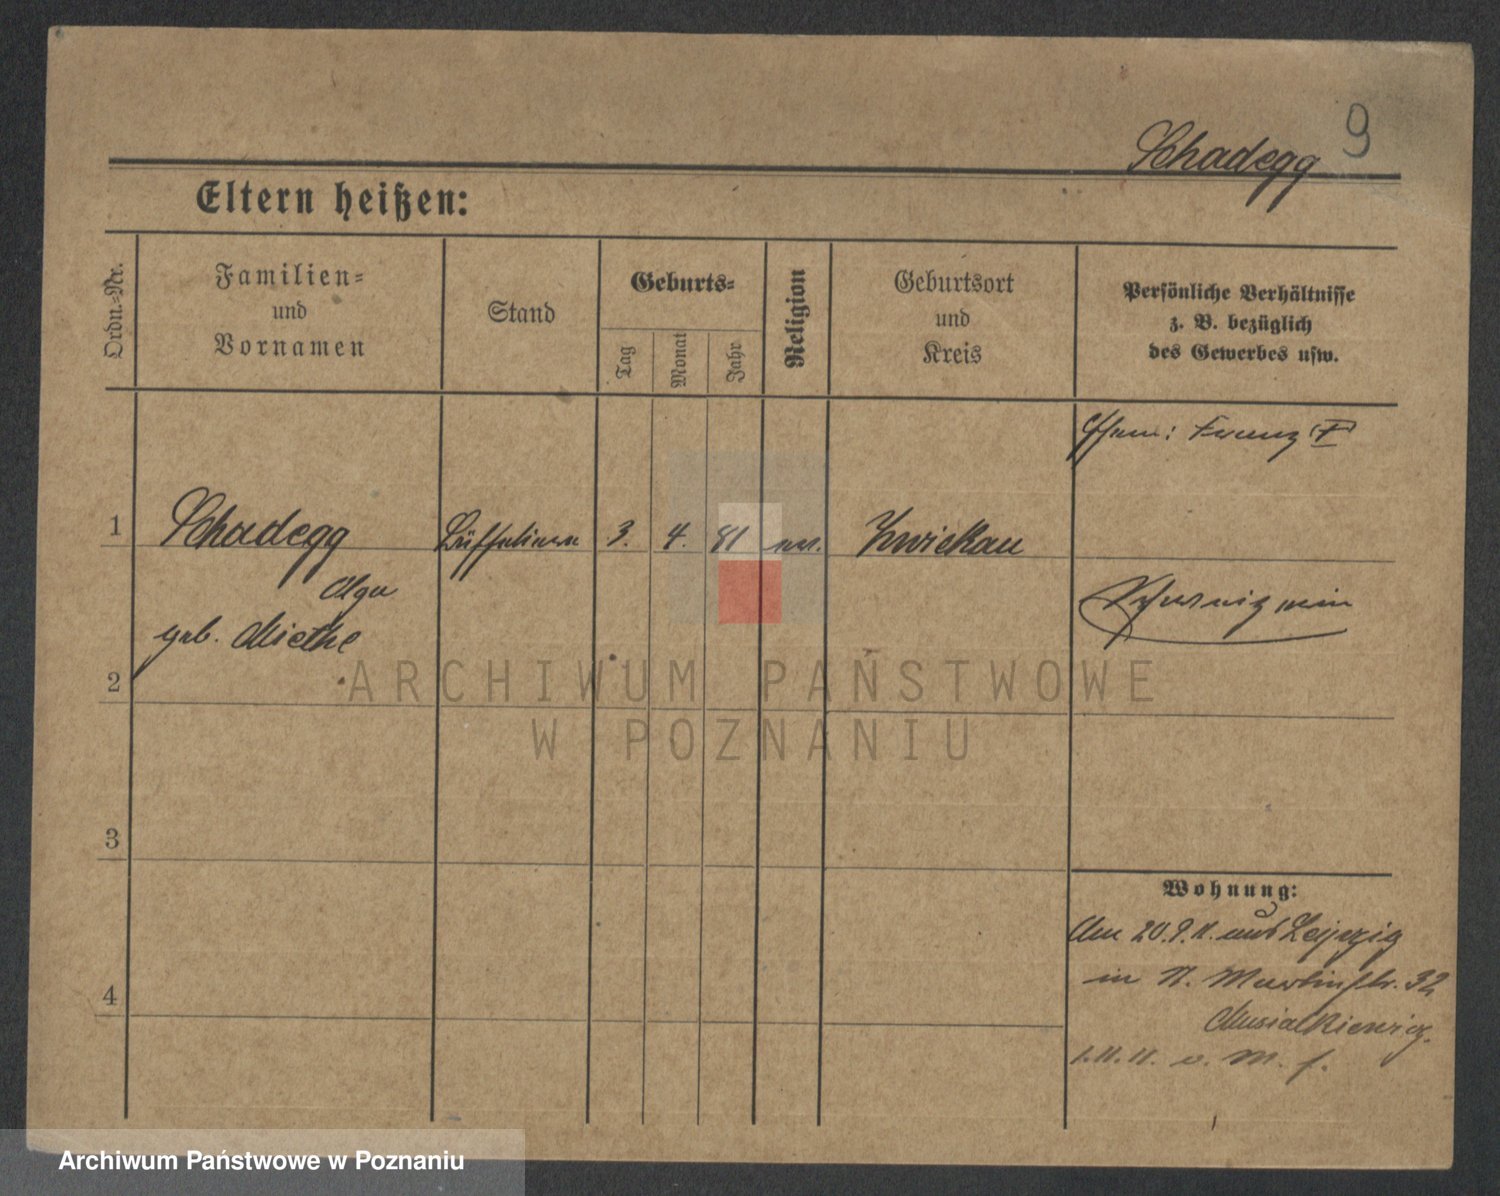 9
Schadegg
Eltern heißen:
Ordn.-Nr.
Familien-
und
Vornamen
Stand
Geburts-
Tag
Monat
Jahr
Religion
Geburtsort
und
Kreis
Persönliche Verhältnisse
z. B. bezüglich
des Gewerbes usw.
Ehem: Franz
1
Schadegg
Büffetiere
3.
4.
81
ev.
Zwickau
Olga
geb. Miethe
2
3
4
Wohnung:
Am 20.9.11. aus Leipzig
in 11. Martinstr. 32
Musialkiewicz.
1.11.11. v. M.
ARCHIWUM PAŃSTWOWE
W POZNANIU
Archiwum Państwowe w Poznaniu